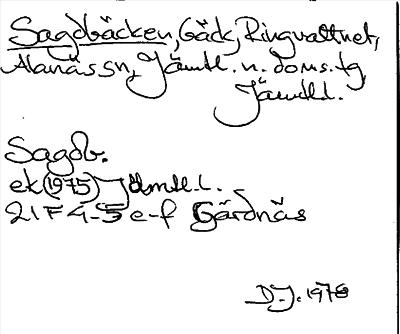 Sagobäcken, bäck, Ringvattnet,
Alanäs sn, Jämtl. n. doms. tg,
Jämtl l.
Sagob.
ek (1975) Jämtl. l.
21F 4-5 e-f Gärdnäs
D.J. 1978